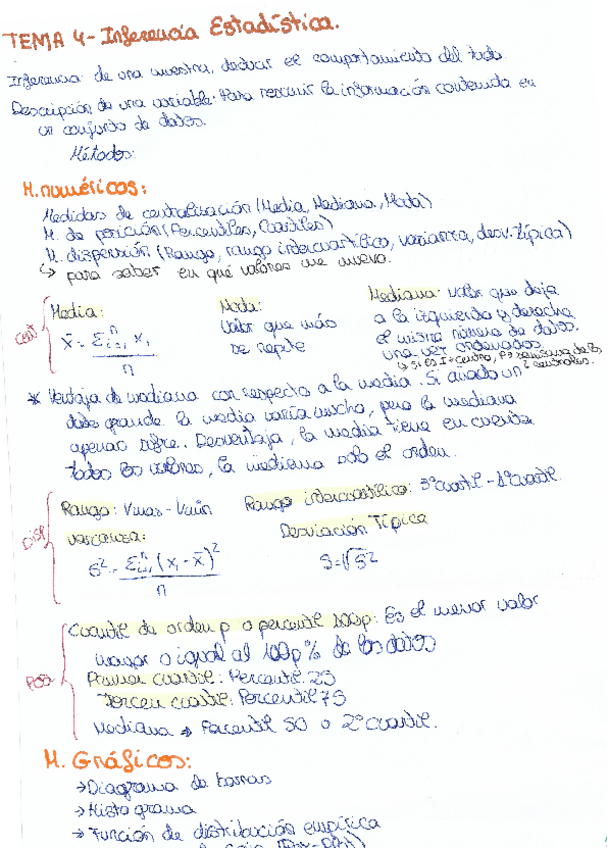 TEMA 4- Inferencia Estadística.
Inferencia: de una muestra, deducir el comportamiento del todo.
Descripción de una variable: Para resumir la información contenida en
un conjunto de datos.
Métodos:
M. numéricos:
Medidas de centralización (Media, Mediana, Moda)
M. de posición (Percentiles, Cuartiles)
M. dispersión (Rango, rango intercuartílico, varianza, desv. típica)
↳ para saber en qué valores me muevo.
Cent
Media:
x̄ = Σᵢ₌₁ⁿ xᵢ / n
Moda:
Valor que más
se repite
Mediana: valor que deja
a la izquierda y derecha
el mismo número de datos.
una vez ordenados
↳ si es I → centro, P → semisuma de los
2 centrales.
* Ventaja de mediana con respecto a la media. Si añado un
dato grande la media varía mucho, pero la mediana
apenas sufre. Desventaja, la media tiene en cuenta
todos los valores, la mediana solo el orden.
DISP
Rango: Vmax - Vmín
Rango intercuartílico: 3º cuartil - 1º cuartil.
varianza:
S² = Σᵢ₌₁ⁿ (xᵢ - x̄)² / n
Desviación Típica
S = √S²
POS
Cuantil de orden p o percentil 100p: Es el menor valor
mayor o igual al 100p% de los datos
Primer cuartil: Percentil 25
Tercer cuartil: Percentil 75
Mediana → Percentil 50 o 2º cuartil.
M. Gráficos:
→ Diagrama de barras
→ Histograma
→ Función de distribución empírica